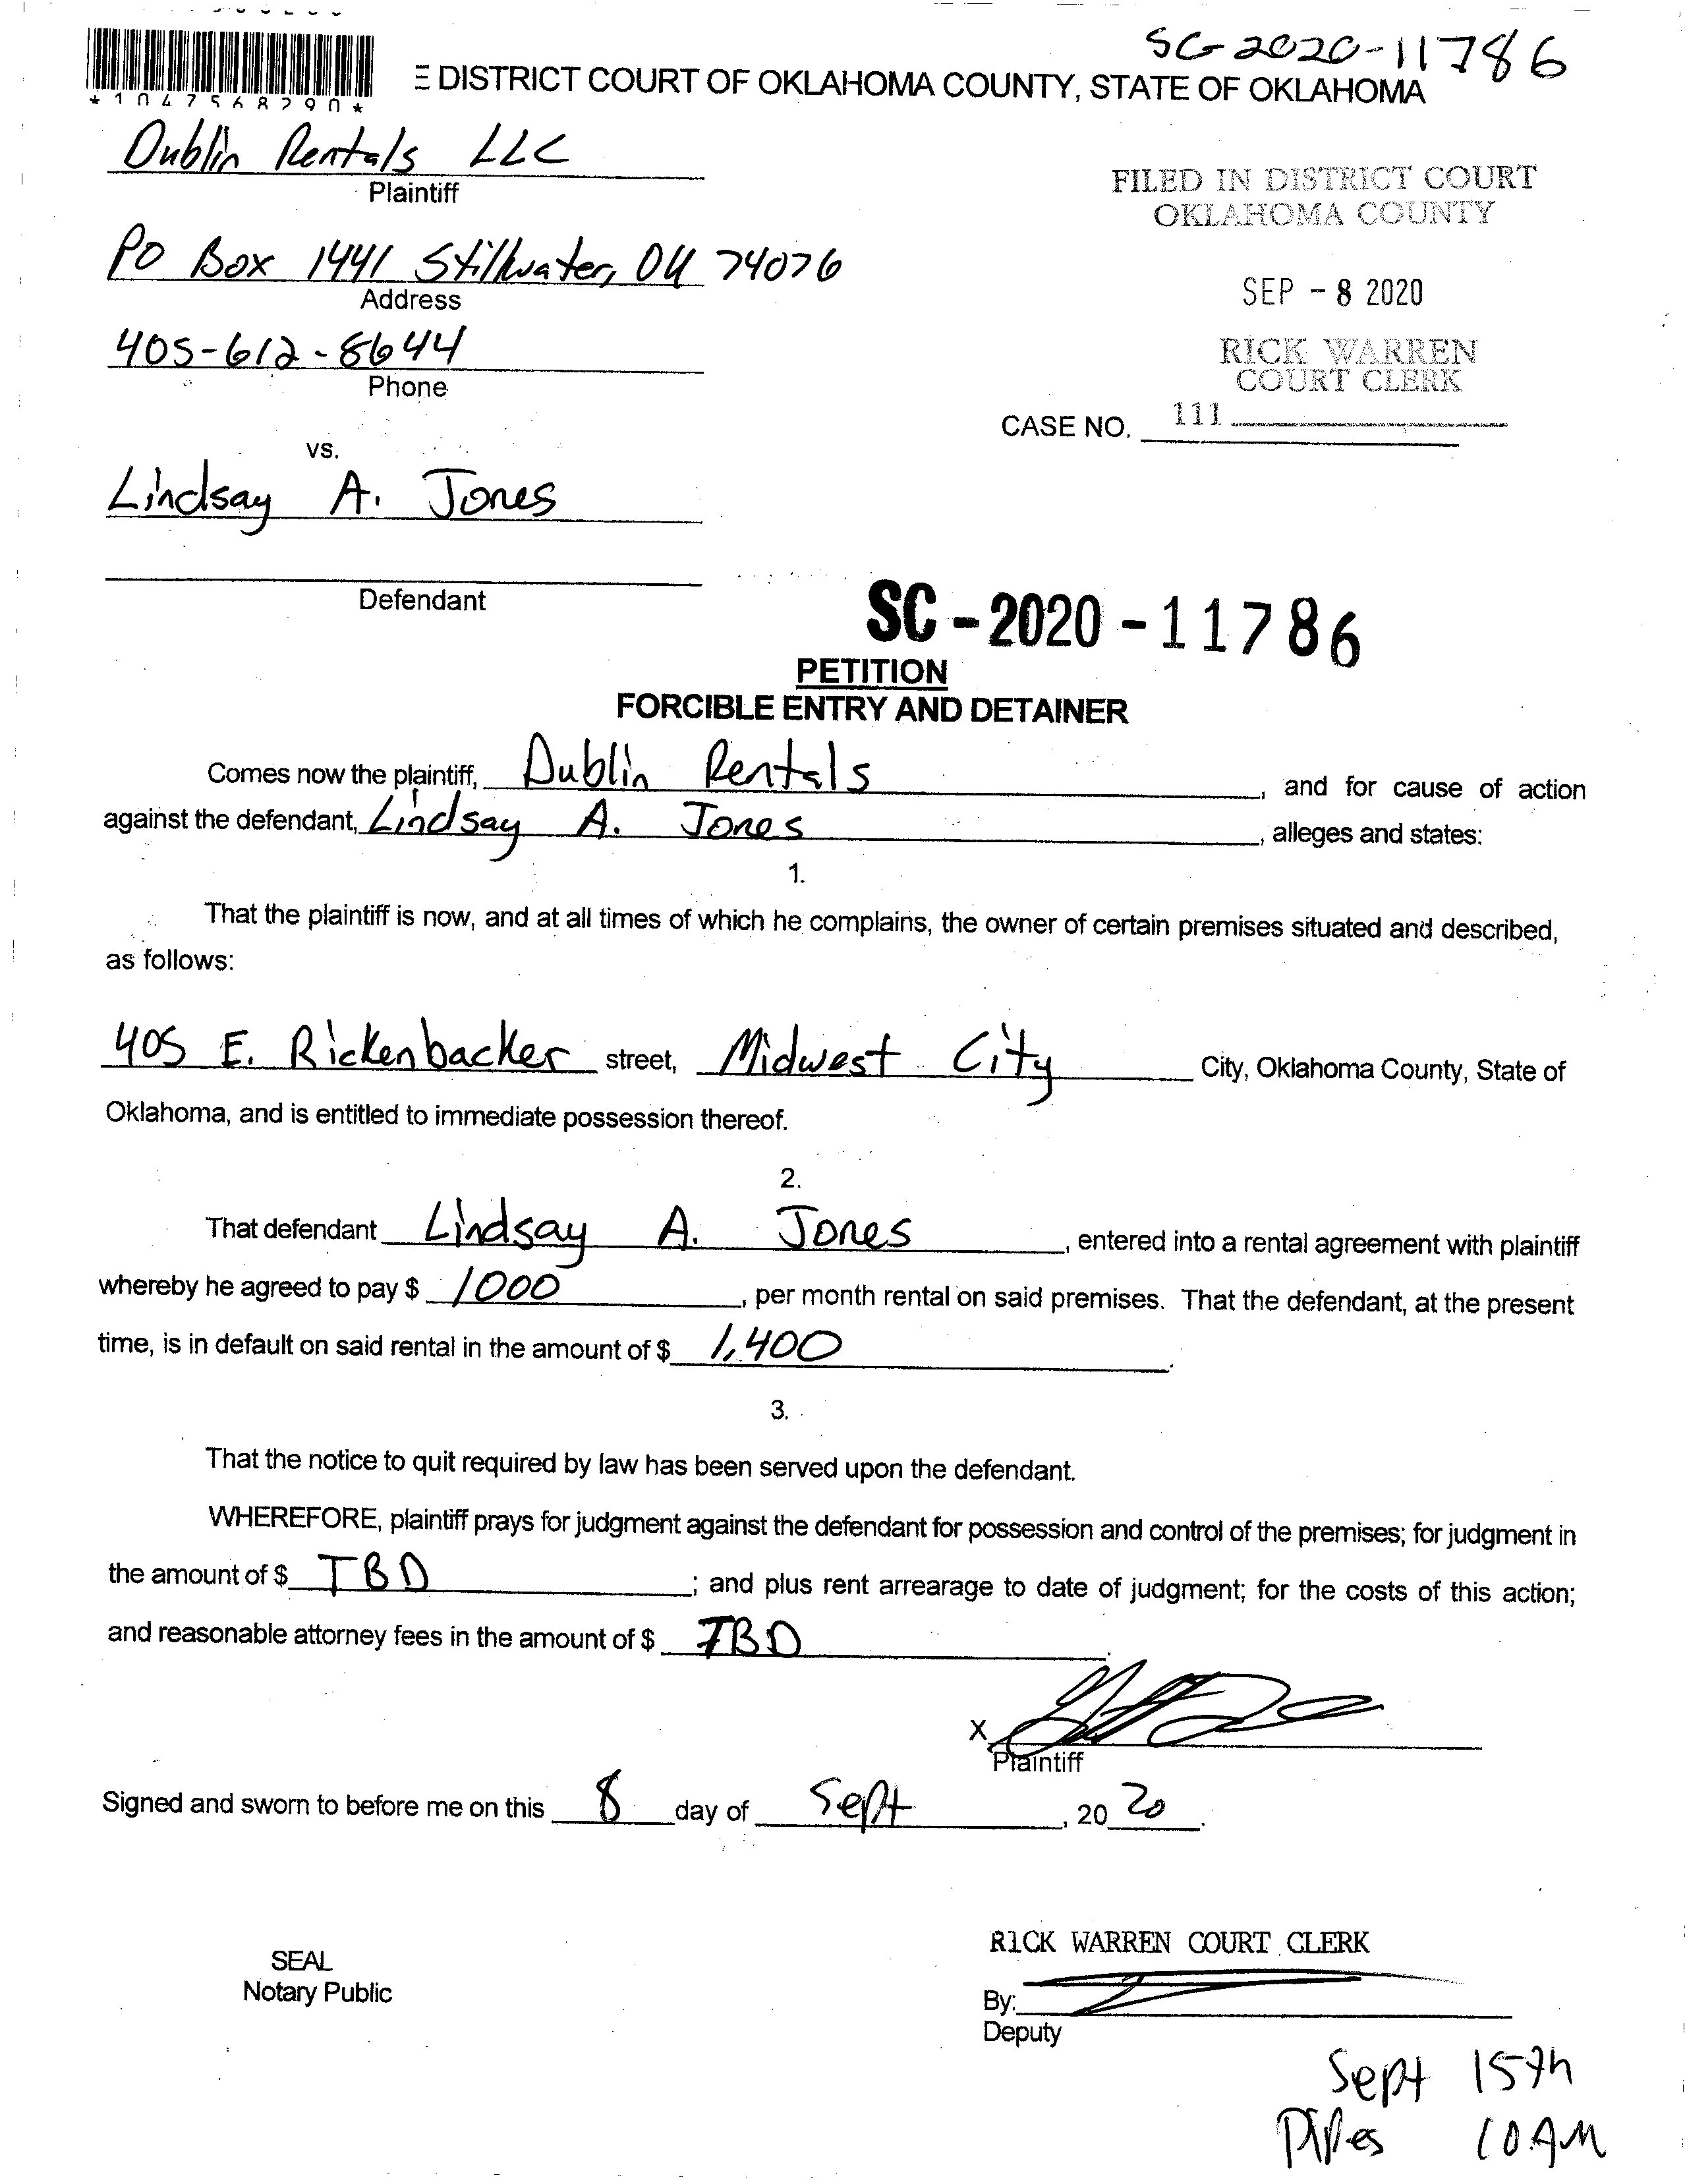 SC-2020-11786
*1047568290*
DISTRICT COURT OF OKLAHOMA COUNTY, STATE OF OKLAHOMA
Dublin Rentals LLC
Plaintiff
FILED IN DISTRICT COURT
OKLAHOMA COUNTY
PO Box 1441 Stillwater, OK 74076
Address
SEP - 8 2020
405-612-8644
Phone
RICK WARREN
COURT CLERK
CASE NO. 111
vs.
Lindsay A. Jones
Defendant
SC - 2020 - 11786
PETITION
FORCIBLE ENTRY AND DETAINER
Comes now the plaintiff, Dublin Rentals, and for cause of action
against the defendant, Lindsay A. Jones, alleges and states:
1.
That the plaintiff is now, and at all times of which he complains, the owner of certain premises situated and described,
as follows:
405 E. Rickenbacker street, Midwest City City, Oklahoma County, State of
Oklahoma, and is entitled to immediate possession thereof.
2.
That defendant Lindsay A. Jones, entered into a rental agreement with plaintiff
whereby he agreed to pay $ 1000, per month rental on said premises. That the defendant, at the present
time, is in default on said rental in the amount of $ 1,400.
3.
That the notice to quit required by law has been served upon the defendant.
WHEREFORE, plaintiff prays for judgment against the defendant for possession and control of the premises; for judgment in
the amount of $ TBD; and plus rent arrearage to date of judgment; for the costs of this action;
and reasonable attorney fees in the amount of $ TBD.
X
Plaintiff
Signed and sworn to before me on this 8 day of Sept, 20 20.
SEAL
Notary Public
RICK WARREN COURT CLERK
By:
Deputy
Sept 15th
Pipes 10 AM